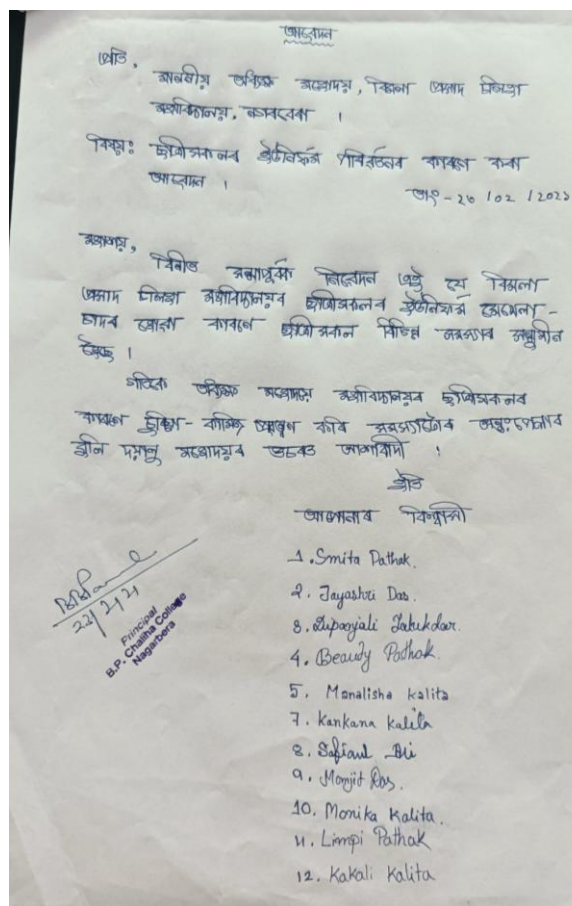 আবেদন
প্ৰতি,
মাননীয় অধ্যক্ষ মহোদয়, বিমলা প্ৰসাদ চলিহা
মহাবিদ্যালয়, নগৰবেৰা ।
বিষয়: ছাত্ৰীসকলৰ ইউনিফৰ্ম পৰিবৰ্তনৰ কাৰণে কৰা
আবেদন ।
তাং - ২০ / ০২ / ২০২১
মহাশয়,
বিনীত নিবেদন এই যে বিমলা
প্ৰসাদ চলিহা মহাবিদ্যালয়ৰ ছাত্ৰীসকলৰ ইউনিফৰ্ম মেখেলা -
চাদৰ হোৱা কাৰণে ছাত্ৰীসকল বিভিন্ন সমস্যাৰ সন্মুখীন
হৈছে ।
গতিকে অধ্যক্ষ মহোদয় মহাবিদ্যালয়ৰ ছাত্ৰীসকলৰ
কাৰণে চুৰিদাৰ - কামিজ কৰি সমস্যাটোৰ অন্ত: পেলাব
দয়ালু মহোদয়ৰ ওচৰত আশাবাদী ।
ইতি
আপোনাৰ বিশ্বাসী
1. Smita Pathak.
2. Jayashri Das.
3. Dipanjali Talukdar.
4. Beauty Pathak.
5. Manalisha Kalita
7. Kankana Kalita
8. Safiaul Bii
9. Monjit Das.
10. Monika Kalita.
11. Limpi Pathak
12. Kakali Kalita
Principal
B.P. Chaliha College
Nagarbera